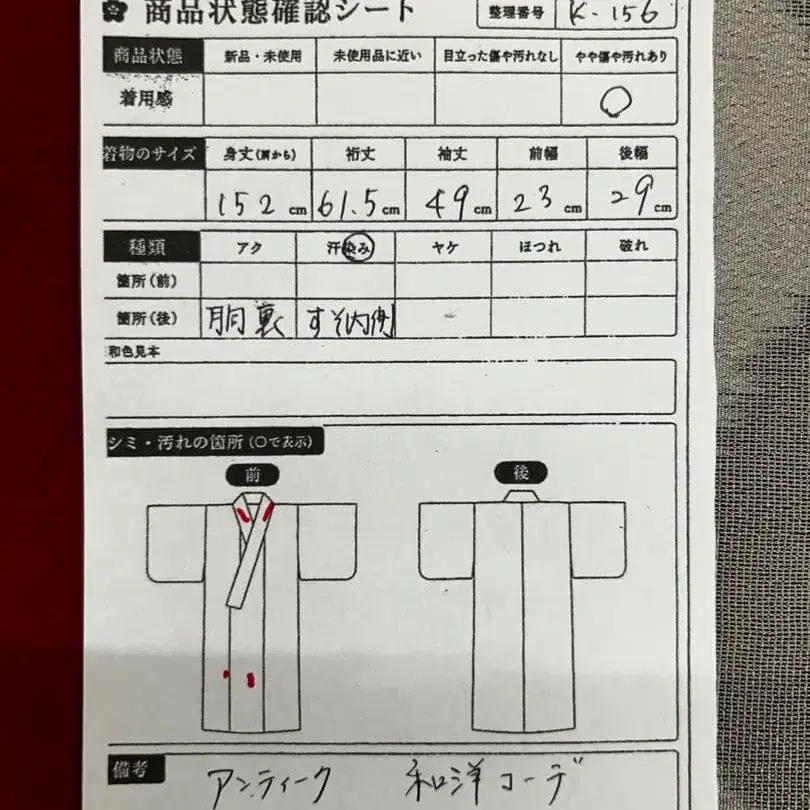 商品状態確認シート 整理番号 K-156
商品状態 新品・未使用 未使用品に近い 目立った傷や汚れなし やや傷や汚れあり
着用感 ○
着物のサイズ 身丈(肩から) 裄丈 袖丈 前幅 後幅
152 cm 61.5 cm 49 cm 23 cm 29 cm
種類 アク 汗染み ヤケ ほつれ 破れ
箇所(前)
箇所(後) 胴裏 すそ内側
和色見本
シミ・汚れの箇所(○で表示)
前 後
備考 アンティーク 和洋コーデ